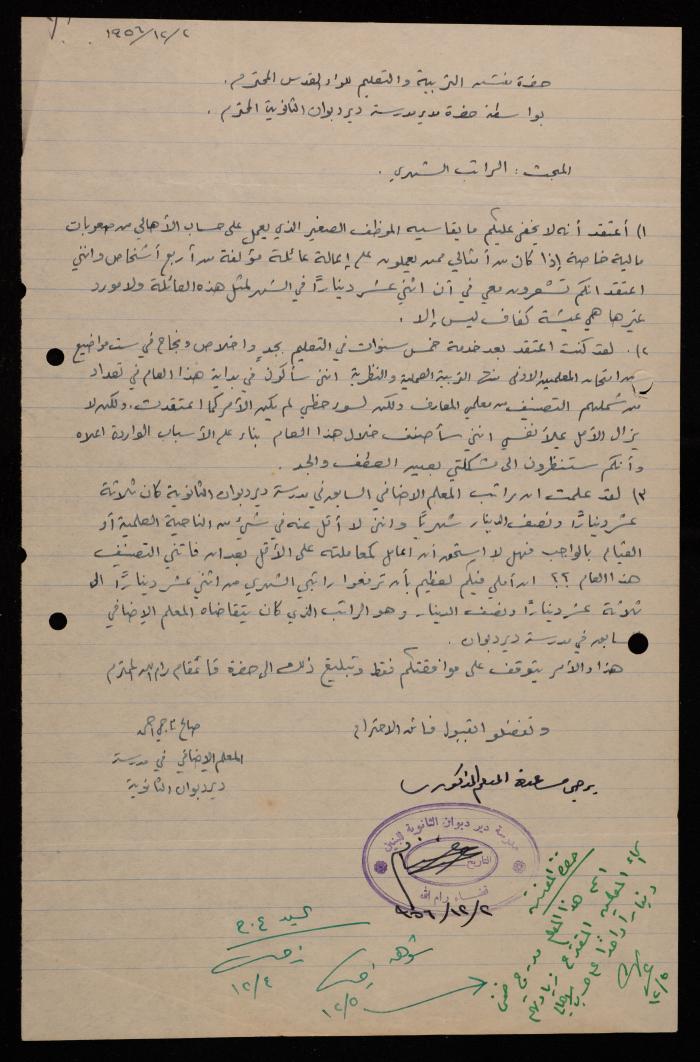 ١٩٥٦/١٢/٢
حضرة مفتش التربية والتعليم للواء القدس المحترم.
بواسطة حضرة مدير مدرسة ديردبوان الثانوية المحترم.
المبحث: الراتب الشهري.
١) أعتقد أنه لا يخفى عليكم ما يقاسيه الموظف الصغير الذي يعمل على حساب الأهالي من صعوبات
مالية خاصة إذا كان من أمثالي ممن يعملون على إعالة عائلة مؤلفة من أربع أشخاص وانني
اعتقد انكم تشعرون معي في أن اثني عشر دينارًا في الشهر لمثل هذه العائلة ولا مورد
غيرها هي عيشة كفاف ليس إلا.
٢). لقد كنت اعتقد بعد خدمة خمس سنوات في التعليم بجدٍ واخلاص ونجاح في ست مواضيع
من امتحان المعلمين الادنى منها التربية العملية والنظرية انني سأكون في بداية هذا العام في تعداد
من شملهم التصنيف من معلمي المعارف ولكن لسوء حظي لم يكن الأمر كما اعتقدت. ولكن لا
يزال الأمل يملأ نفسي انني سأصنف خلال هذا العام بناء على الأسباب الواردة اعلاه
وأنكم ستنظرون الى مشكلتي بعين العطف والجد.
٣) لقد علمت ان راتب المعلم الاضافي السابق في مدرسة ديردبوان الثانوية كان ثلاثة
عشر دينارًا ونصف الدينار شهريًا وانني لا أقل عنه في شيء من الناحية العلمية أو
القيام بالواجب فهل لا استحق أن اعامل كمعاملته على الأقل بعد ان فاتني التصنيف
هذا العام ؟؟ ان أملي فيكم لعظيم بأن ترفعوا راتبي الشهري من اثني عشر دينارًا الى
ثلاثة عشر دينارًا ونصف الدينار وهو الراتب الذي كان يتقاضاه المعلم الاضافي
السابق في مدرسة ديردبوان.
هذا والأمر يتوقف على موافقتكم فقط وتبليغ ذلك الى حضرة قائمقام رام الله المحترم
وتفضلوا بقبول فائق الاحترام
المعلم الإضافي في مدرسة
ديردبوان الثانوية
يرجى مساعدة المعلم المذكور
مدرسة دير دبوان الثانوية للبنين
التاريخ
قضاء رام الله
١٩٥٦/١٢/٢
السيد
١٢/٤
شوهد
١٢/٥
حضرة المفتش
اسم هذا المعلم
دينارًا واحدًا
١٢/٥